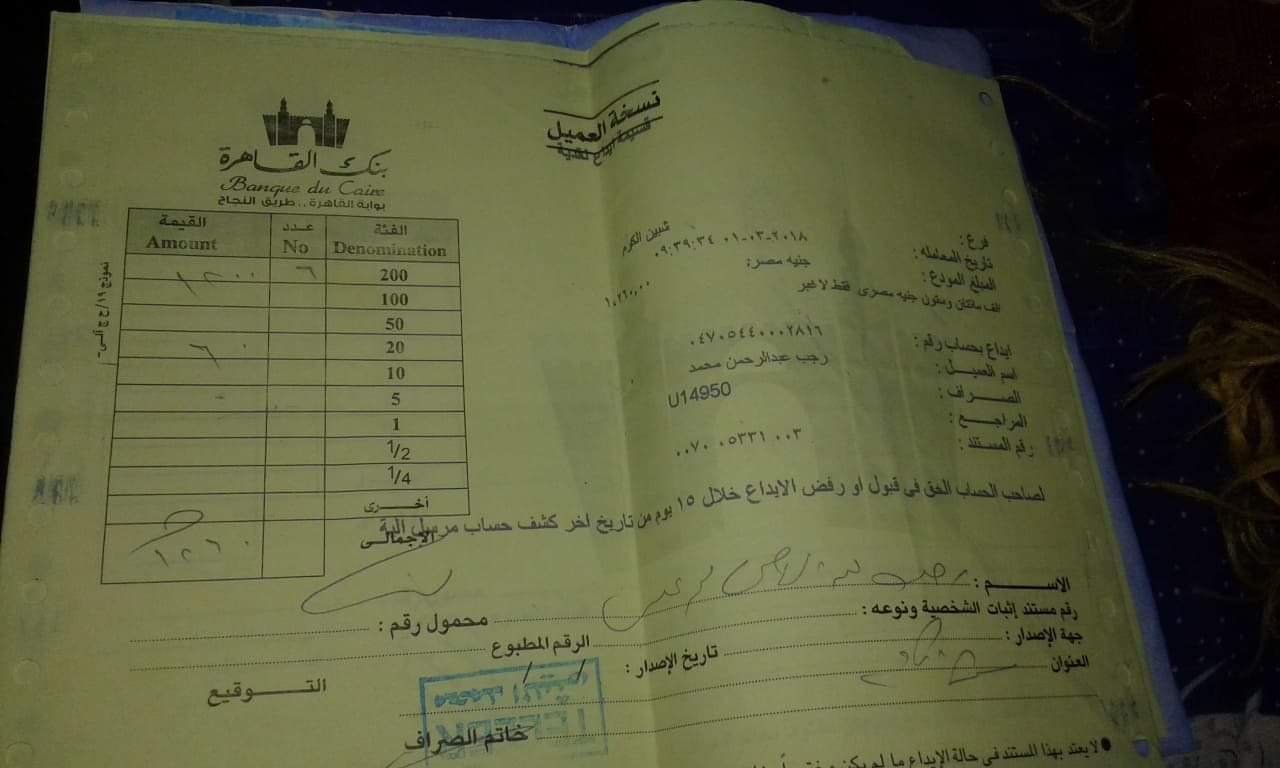 نسخة العميل
قسيمة ايداع نقدية
بنك القاهرة
Banque du Caire
بوابة القاهرة .. طريق النجاح
القيمة عدد الفئة
Amount No Denomination
١٢٠٠ ٦ 200
100
50
٦٠ 20
10
5
1
1/2
1/4
أخرى
١٢٦٠ الإجمالى
فرع : شبين الكوم
تاريخ المعامله : ٢٠١٨-٠٣-٠١ ٠٩:٣٩:٣٤
المبلغ المودع : جنيه مصر: ١,٢٦٠,٠٠
الف مائتان وستون جنيه مصرى فقط لا غير
ايداع بحساب رقم : ٠٤٧٠٥٤٤٠٠٠٢٨١٦
اسم العميل : رجب عبدالرحمن محمد
الصراف : U14950
المراجع :
رقم المستند : ٠٠٧٠ ٠٥٣٣١ ٠٠٣
لصاحب الحساب الحق في قبول او رفض الايداع خلال ١٥ يوم من تاريخ اخر كشف حساب مرسل الية
الاسم :
محمول رقم :
رقم مستند إثبات الشخصية ونوعه :
الرقم المطبوع
جهة الإصدار :
تاريخ الإصدار :
العنوان
التوقيع
TELLER
خاتم الصراف
لا يعتد بهذا المستند في حالة الإيداع ما لم يكن